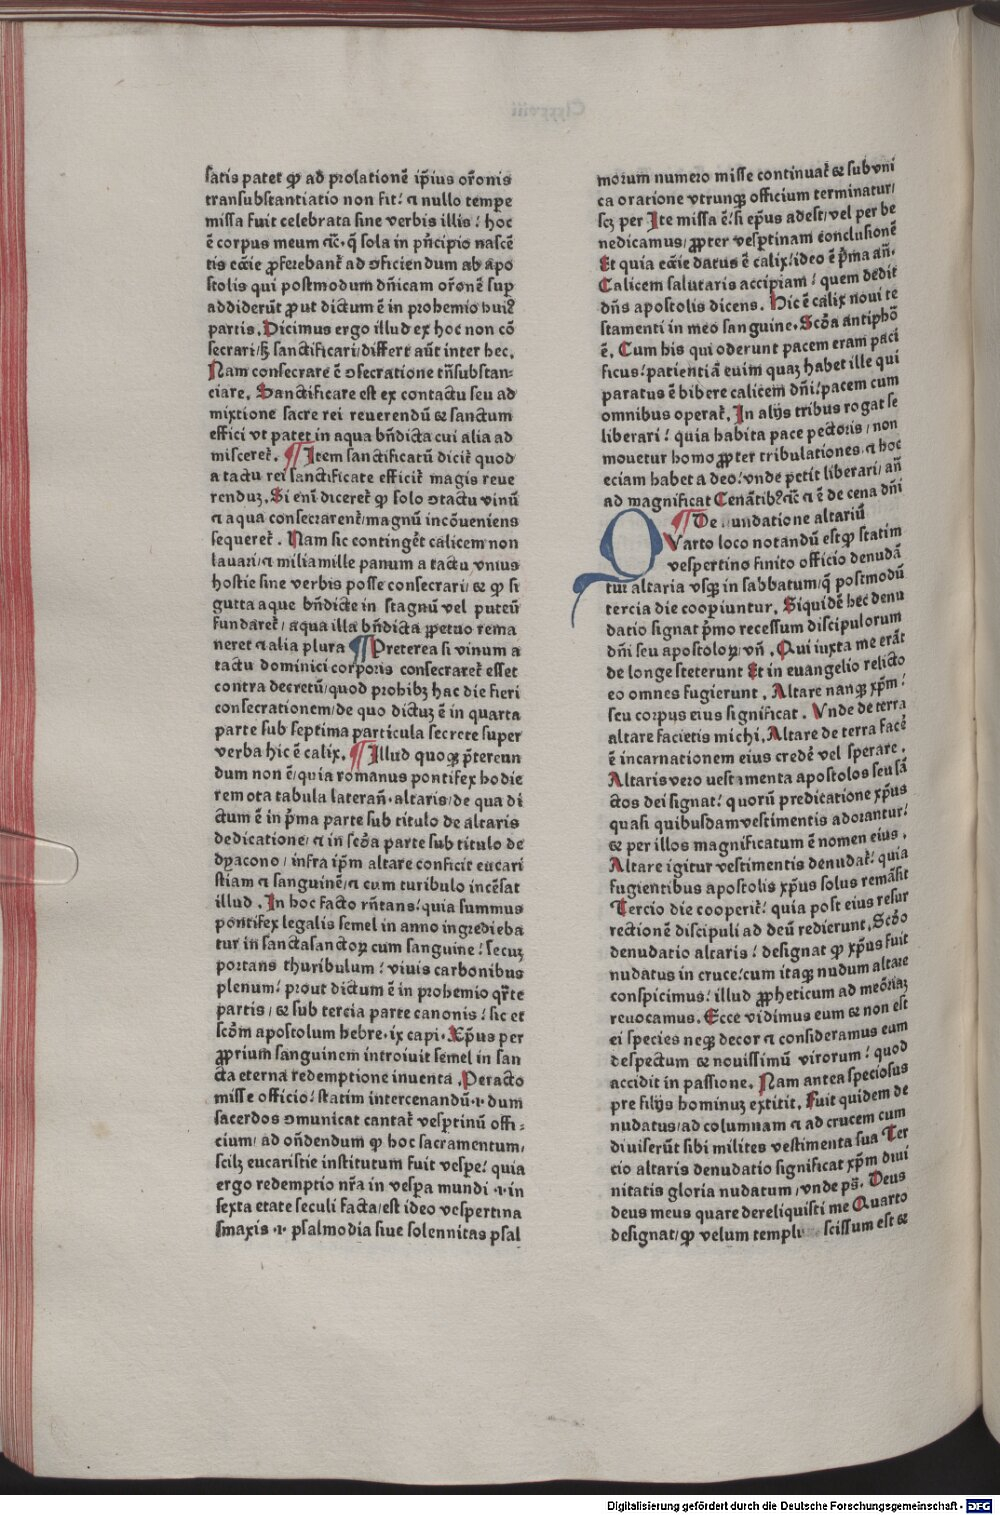 satis patet ꝙ ad prolationē ip̄ius or̄onis
transubstantiatio non fit: ⁊ nullo tempe
missa fuit celebrata sine verbis illis: hoc
ē corpus meum ⁊c̄. q̄ sola in pn̄cipio nascē
tis eccīe ꝓferebant᷑ ad ꝯficiendum ab apo
stolis qui postmodum dn̄icam or̄onē sup
addiderūt ꝓut dictum ē in prohemio huiꝰ
partis. Dicimus ergo illud ex hoc non cō
secrari/sꝫ sanctificari/differt aūt inter hec.
Nam consecrare ē ꝯsecratione trāsubstan⸗
ciare. Sanctificare est ex contactu seu ad
mixtione sacre rei reuerendū ⁊ sanctum
effici vt patet in aqua bn̄dicta cui alia ad
miscet᷑. ¶ Item sanctificatū dicit᷑ quod
a tactu rei sanctificate efficit᷑ magis reue
renduꝫ. Si eni diceret᷑ ꝙ solo ꝯtactu vinū
⁊ aqua consecrarent᷑/magnū incōueniens
sequeret᷑. Nam sic continget᷑ calicem non
lauari/⁊ miliamille panum a tactu vnius
hostie sine verbis posse consecrari/ ⁊ ꝙ si
gutta aque bn̄dicte in stagnū vel puteū
fundaret᷑/ aqua illa bn̄dicta ꝑpetuo rema
neret ⁊ alia plura ¶ Preterea si vinum a
tactu dominici corporis consecraret᷑ esset
contra decretū/quod prohibꝫ hac die fieri
consecrationem/de quo dictuꝫ ē in quarta
parte sub septima particula secrete super
verba hic ē calix. ¶ Illud quoqꝫ p̄tereun
dum non ē/quia romanus pontifex hodie
remota tabula laterañ. altaris/de qua di
ctum ē in p̄ma parte sub titulo de altaris
dedicatione/ ⁊ in scd̄a parte sub titulo de
dyacono/ infra ip̄m altare conficit eucari
stiam ⁊ sanguinē/⁊ cum turibulo incēsat
illud. In hoc facto rn̄tans: quia summus
pontifex legalis semel in anno ingredieba
tur in sanctasanctoꝝ cum sanguine: secuꝫ
portans thuribulum: viuis carbonibus
plenum: prout dictum ē in prohemio qr̄te
partis/ ⁊ sub tercia parte canonis: sic et
scd̄m apostolum hebre. ix capi. Xp̄us per
ꝓprium sanguinem introiuit semel in san
cta eterna redemptione inuenta. Peracto
misse officio: statim intercenandū .i. dum
sacerdos ꝯmunicat cantat᷑ vesp̱tinū offi⸗
cium/ ad on̄dendum ꝙ hoc sacramentum/
scilꝫ eucaristie institutum fuit vesp̱e: quia
ergo redemptio nr̄a in vesp̱a mundi .i. in
sexta etate seculi facta/est ideo vespertina
smaxis .i. psalmodia siue solennitas psal
morum numero misse continuat᷑ ⁊ sub vni
ca oratione vtrunqꝫ officium terminatur/
scꝫ per Ite missa ē: si ep̄us adest/vel per be
nedicamus/ꝓpter vesp̱tinam conclusionē
Et quia eccīe datus ē calix/ideo ē p̄ma añ.
Calicem salutaris accipiam: quem dedit
dn̄s apostolis dicens. Hic ē calix noui te
stamenti in meo sanguine. Scd̄a antiphō
ē. Cum his qui oderunt pacem eram paci
ficus: patientiā enim quaꝫ habet ille qui
paratus ē bibere calicem dn̄i: pacem cum
omnibus operat᷑. In alijs tribus rogat se
liberari: quia habita pace pectoris/ non
mouetur homo ꝓpter tribulationes ⁊ hoc
eciam habet a deo: vnde petit liberari/ añ
ad magnificat Cenātibꝰ ⁊c̄ ⁊ ē de cena dn̄i
¶ De undatione altariū
QVarto loco notandū est ꝙ statim
vespertino finito officio denudā
tur altaria vsqꝫ in sabbatum/q̄ postmodū
tercia die coopiuntur. Siquidē hec denu
datio signat p̄mo recessum discipulorum
dn̄i seu apostoloꝝ/vñ. Qui iuxta me erāt
de longe steterunt Et in euangelio relicto
eo omnes fugierunt. Altare nanqꝫ xp̄m:
seu corpus eius significat. Vnde de terra
altare facietis michi. Altare de terra facē
ē incarnationem eius credē vel sperare.
Altaris vero uestimenta apostolos seu sā
ctos dei signat: quorū predicatione xp̄us
quasi quibusdam vestimentis adorantur:
⁊ per illos magnificatum ē nomen eius.
Altare igitur vestimentis denudat᷑: quia
fugientibus apostolis xp̄us solus remāsit
Tercio die cooperit᷑: quia post eius resur
rectionē discipuli ad deū redierunt. Scd̄o
denudatio altaris: designat ꝙ xp̄us fuit
nudatus in cruce: cum itaqꝫ nudum altare
conspicimus: illud ꝓpheticum ad meōriaꝫ
reuocamus. Ecce vidimus eum ⁊ non est
ei species neqꝫ decor ⁊ consideramus eum
despectum ⁊ nouissimū virorum: quod
accidit in passione. Nam antea speciosus
pre filijs hominuꝫ extitit. Fuit quidem de
nudatus/ad columnam ⁊ ad crucem cum
diuiserūt sibi milites vestimenta sua Ter
cio altaris denudatio significat xp̄m diui
nitatis gloria nudatum/vnde ps̄. Deus
deus meus quare dereliquisti me Quarto
designat/ꝙ velum templi scissum est ⁊
Digitalisierung gefördert durch die Deutsche Forschungsgemeinschaft - DFG